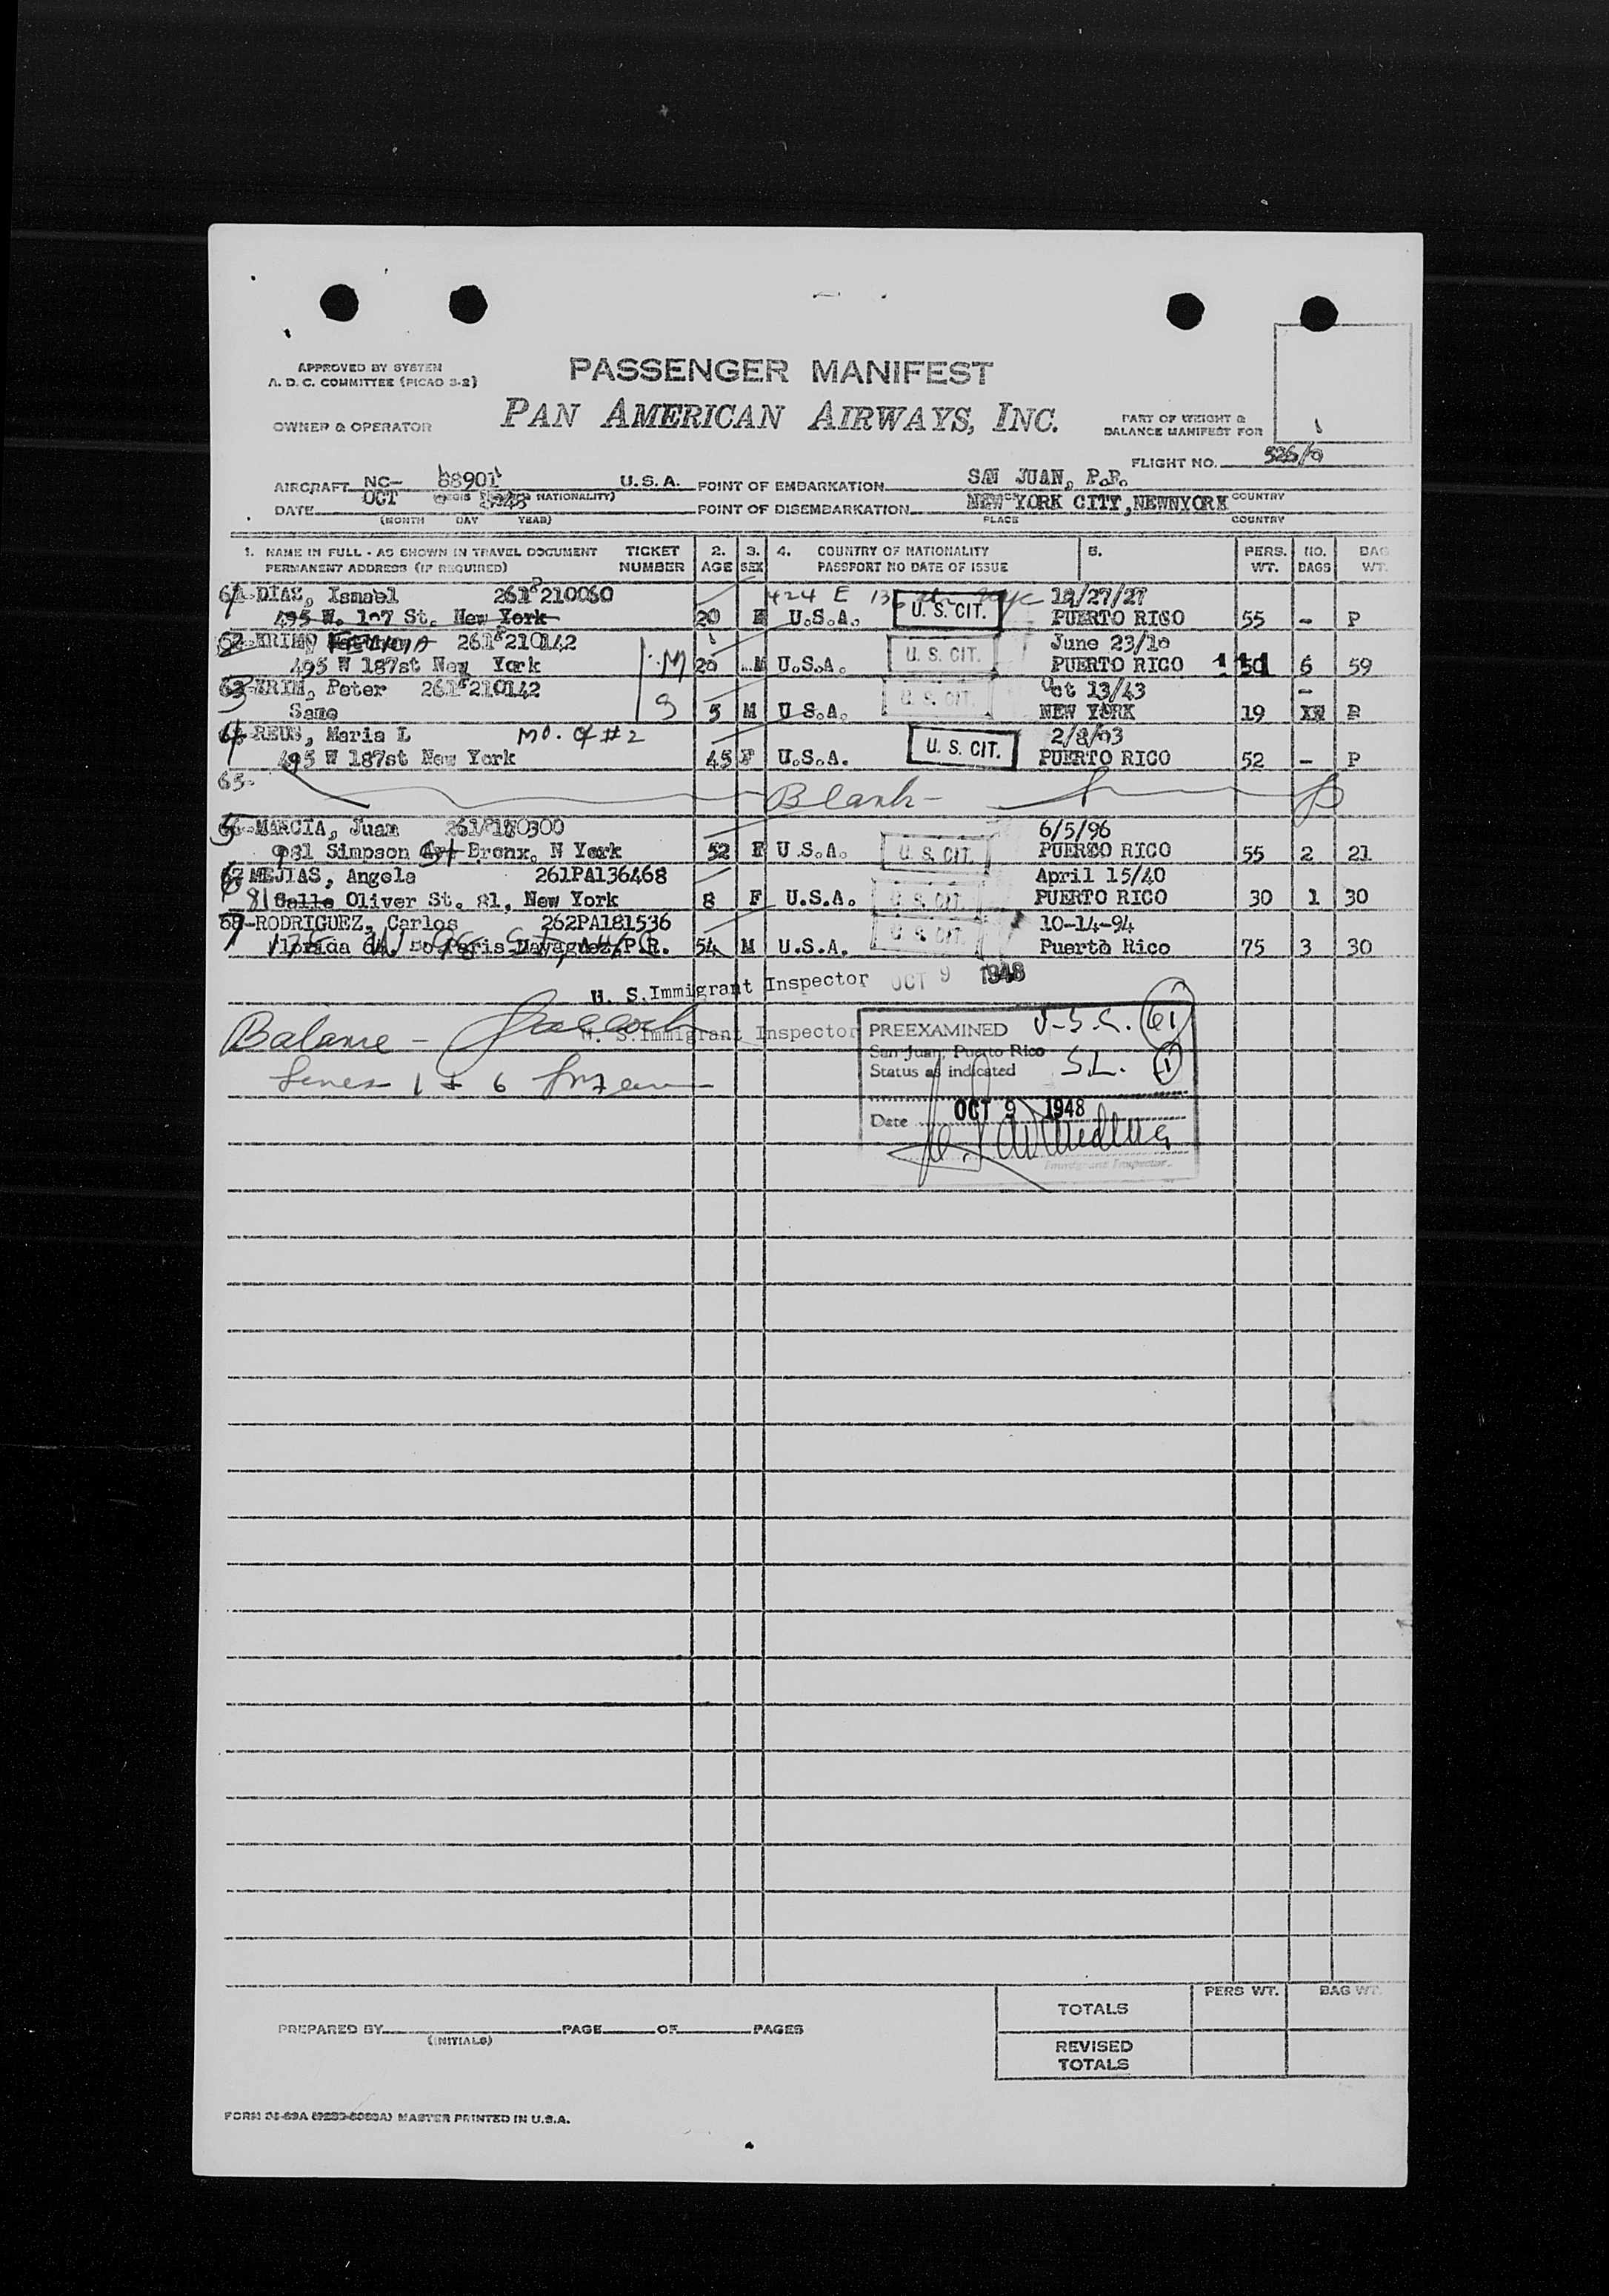 APPROVED BY SYSTEM
A. D. C. COMMITTEE (PICAO 3-2)
PASSENGER MANIFEST
OWNER & OPERATOR
PAN AMERICAN AIRWAYS, INC.
PART OF WEIGHT &
BALANCE MANIFEST FOR
FLIGHT NO. 526/9
AIRCRAFT NC- 88901 U. S. A. POINT OF EMBARKATION SAN JUAN, P.R.
NATIONALITY) COUNTRY
DATE OCT 1948 POINT OF DISEMBARKATION NEW YORK CITY, NEWNYORK
(MONTH DAY YEAR) PLACE COUNTRY
1. NAME IN FULL - AS SHOWN IN TRAVEL DOCUMENT TICKET 2. 3. 4. COUNTRY OF NATIONALITY 5. PERS. NO. BAG
PERMANENT ADDRESS (IF REQUIRED) NUMBER AGE SEX PASSPORT NO DATE OF ISSUE WT. BAGS WT.
61-DIAZ, Ismael 261P210060 424 E 136 12/27/27
495 W. 107 St. New York 20 U.S.A. U. S. CIT. PUERTO RICO 55 - P
KRIM, 261P210142 June 23/10
495 W 187st New York M M U.S.A. U. S. CIT. PUERTO RICO 6 59
63-KRIM, Peter 261P210142 Oct 13/43 -
Same S 5 M U S.A. U. S. CIT. NEW YORK 19 P
64-REUS, Maria L Mo. of #2 2/8/03
495 W 187st New York 45 F U.S.A. U. S. CIT. PUERTO RICO 52 - P
65-
Blank-
66-MARCIA, Juan 6/5/96
981 Simpson St Bronx, N York 52 U S.A. U. S. CIT. PUERTO RICO 55 2 21
MEJIAS, Angela 261PA136468 April 15/40
81 Calle Oliver St. 81, New York 8 F U.S.A. U. S. CIT. PUERTO RICO 30 1 30
-RODRIGUEZ, Carlos 262PA181536 10-14-94
Florida Mayaguez P.R. 54 M U.S.A. U. S. CIT. Puerto Rico 75 3 30
U. S. Immigrant Inspector OCT 9 1948
Balance -
U. S. Immigrant Inspector
Lines 1 + 6
PREEXAMINED U.S.C. 61
San Juan, Puerto Rico
Status as indicated S.L. 1
Date OCT 9 1948
Immigrant Inspector.
TOTALS PERS WT. BAG WT.
PREPARED BY PAGE OF PAGES
(INITIALS)
REVISED
TOTALS
MASTER PRINTED IN U.S.A.